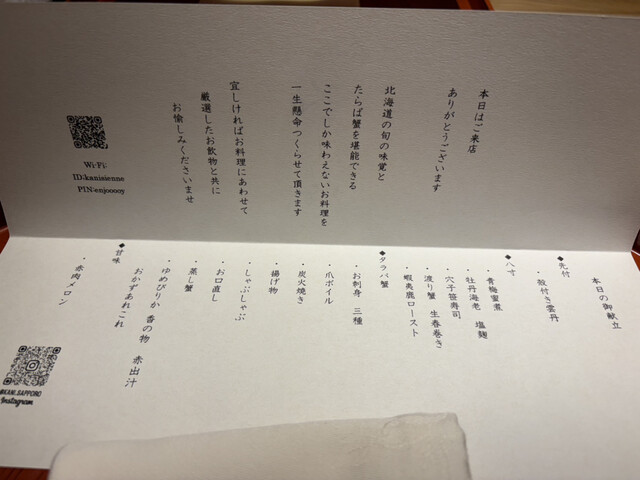 本日はご来店
ありがとうございます
北海道の旬の味覚と
たらば蟹を堪能できる
ここでしか味わえないお料理を
一生懸命つくらせて頂きます
宜しければお料理にあわせて
厳選したお飲物と共に
お愉しみくださいませ
Wi-Fi:
ID:kanisienne
PIN:enjooooy
本日の御献立
◆先付
・殻付き雲丹
◆八寸
・青梅蜜煮
・牡丹海老 塩麹
・穴子笹寿司
・渡り蟹 生春巻き
・蝦夷鹿ロースト
◆タラバ蟹
・お刺身 三種
・爪ボイル
・炭火焼き
・揚げ物
・しゃぶしゃぶ
・お口直し
・蒸し蟹
・ゆめぴりか 香の物 赤出汁
おかずあれこれ
◆甘味
・赤肉メロン
KANI.SAPPORO
Instagram